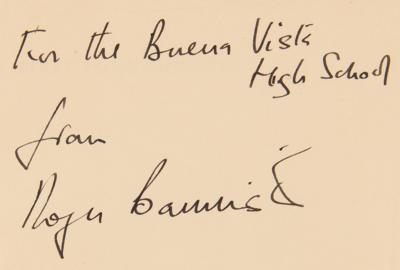 For the Buena Vista
High School
from
Roger Bannister